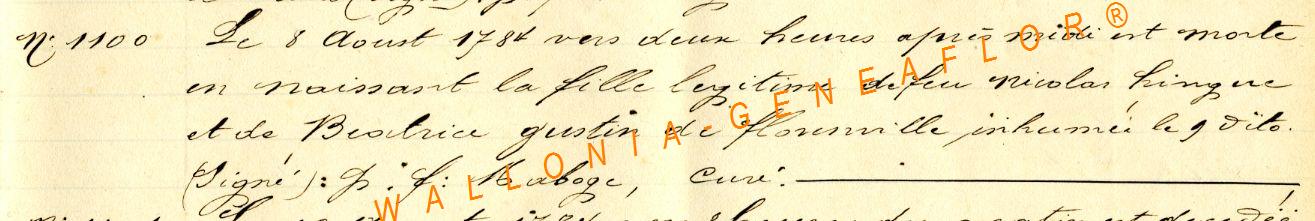 N° 1100 Le 8 Aoust 1784 vers deux heures après midi est morte
en naissant la fille legitime de feu Nicolas
et de Beatrice gustin de florenville inhumée le 9 dito.
(Signé): p. f: Maboge, Curé.
WALLONIA-GENEAFLOR®